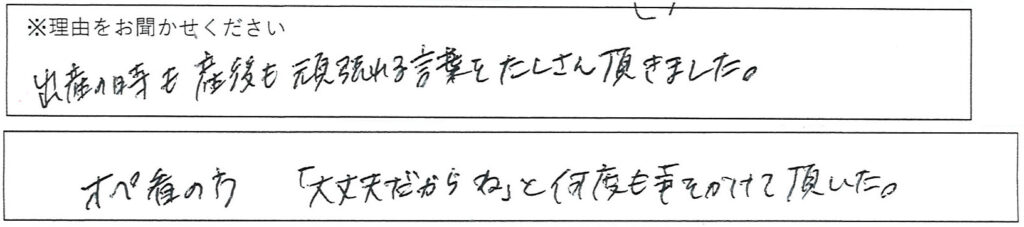 ※理由をお聞かせください
出産の時も産後も頑張れる言葉をたくさん頂きました。
オペ看の方 「大丈夫だからね」と何度も声をかけて頂いた。